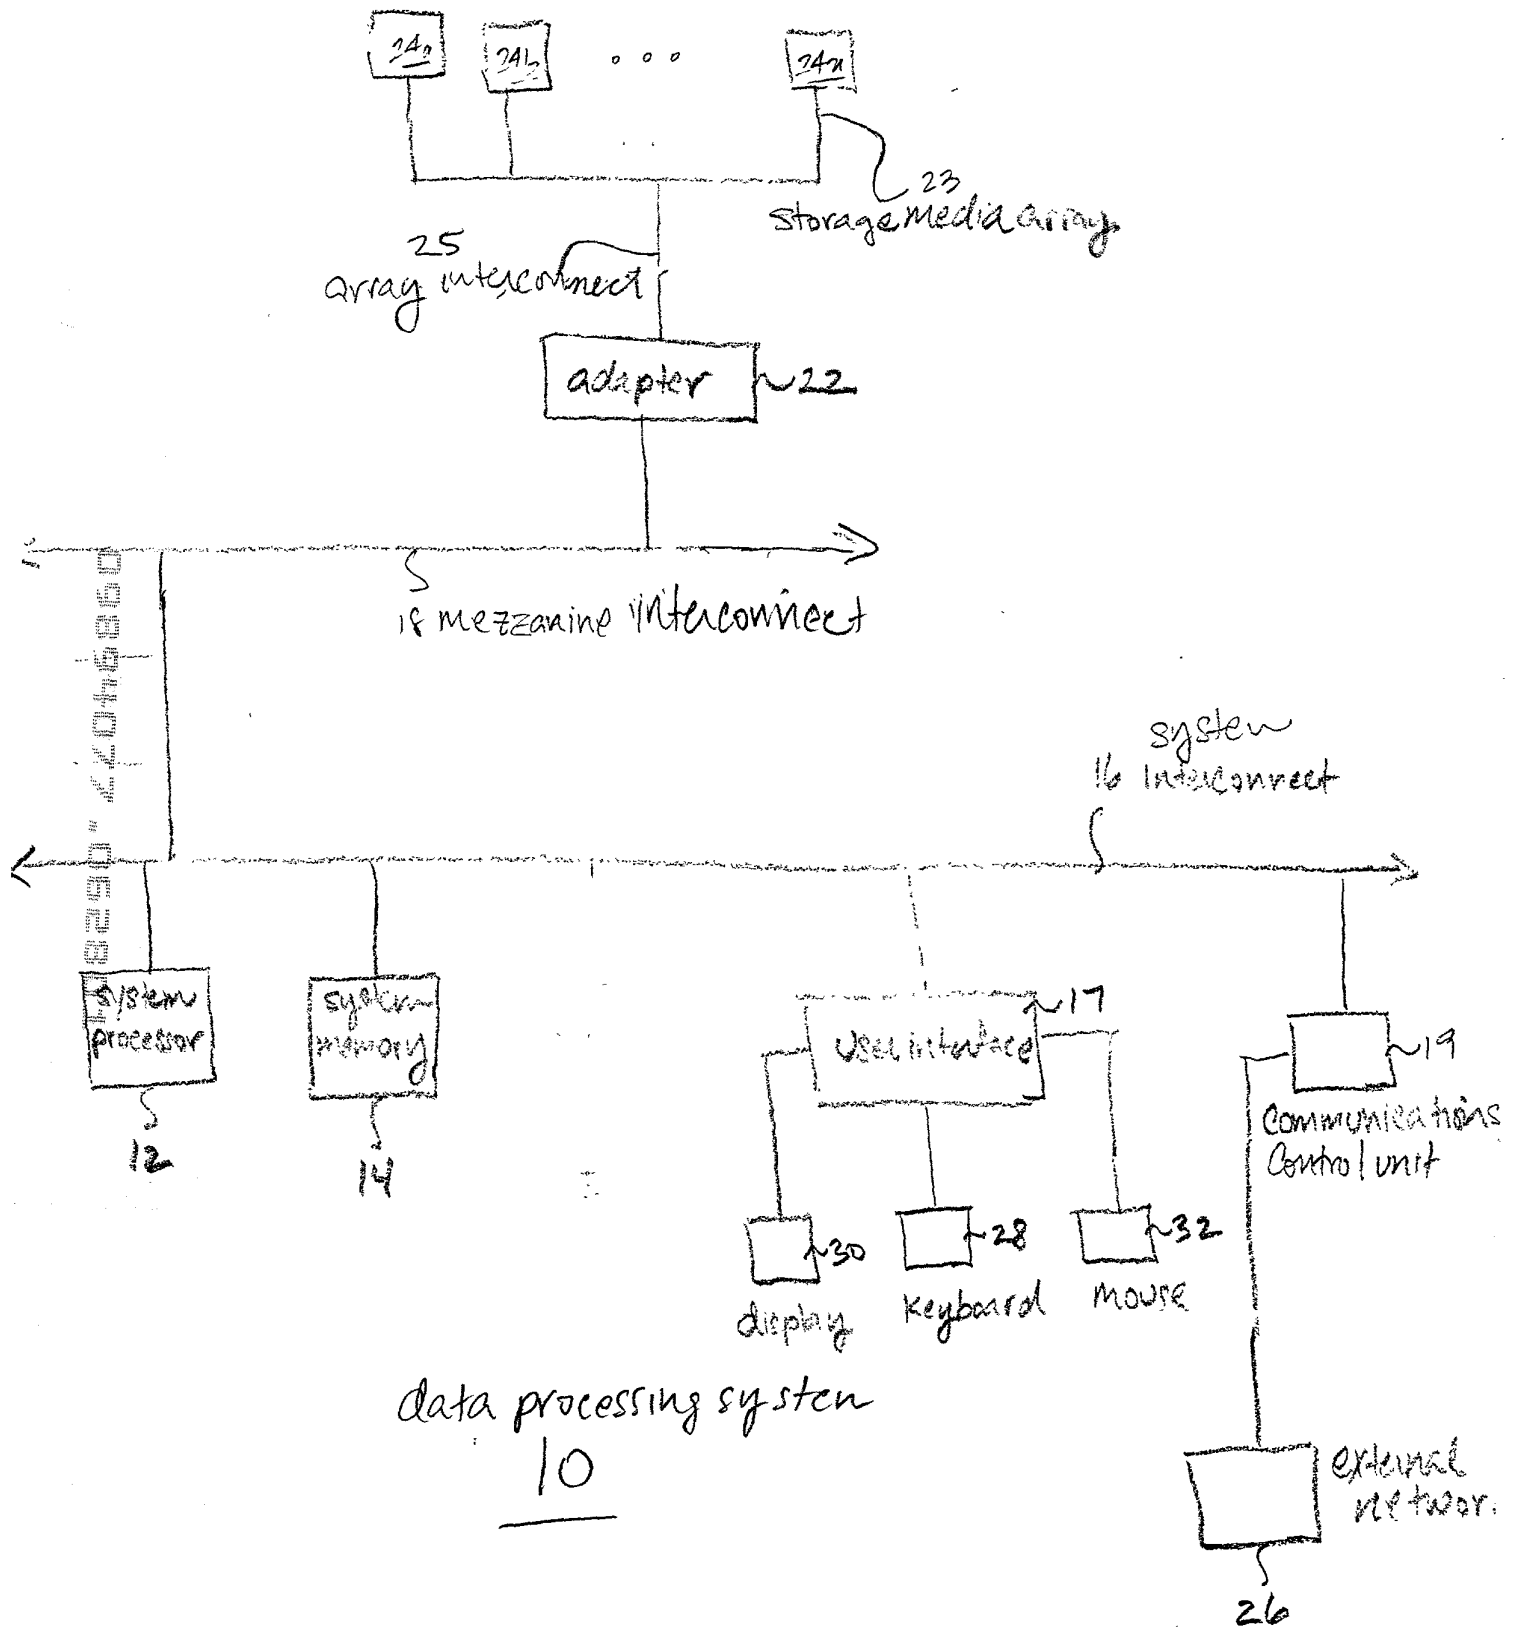 24a 24b 24n
23
storage media array
25
array interconnect
adapter 22
18 mezzanine interconnect
system
16 interconnect
system
processor
12
system
memory
14
user interface 17
19
communications
control unit
30 28 32
display keyboard mouse
data processing system
10
external
networ
26